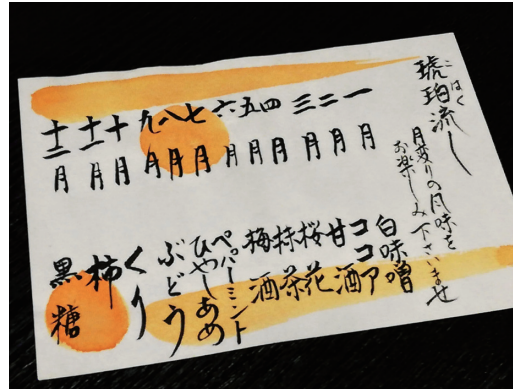 琥珀流し
こはく
月変りの風味を
お楽しみ下さいませ
一月 白味噌
二月 ココア
三月 甘酒
四月 桜花
五月 抹茶
六月 梅酒
七月 ペパーミント
八月 ひやしあめ
九月 ぶどう
十月 くり
十一月 柿
十二月 黒糖